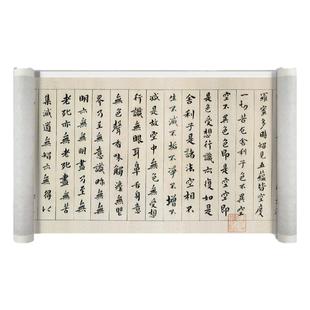 羅蜜多時照見五蘊皆空度
一切苦厄舍利子色不異空
空不異色色即是空空即
是色受想行識亦復如是
舍利子是諸法空相不
生不滅不垢不淨不增
減是故空中無受想
行識無眼耳鼻舌身意
無色聲香味觸法無眼
界乃至無意識界無
明亦無無明盡乃至無
老死亦無老死盡無苦
集滅道無智亦無得以